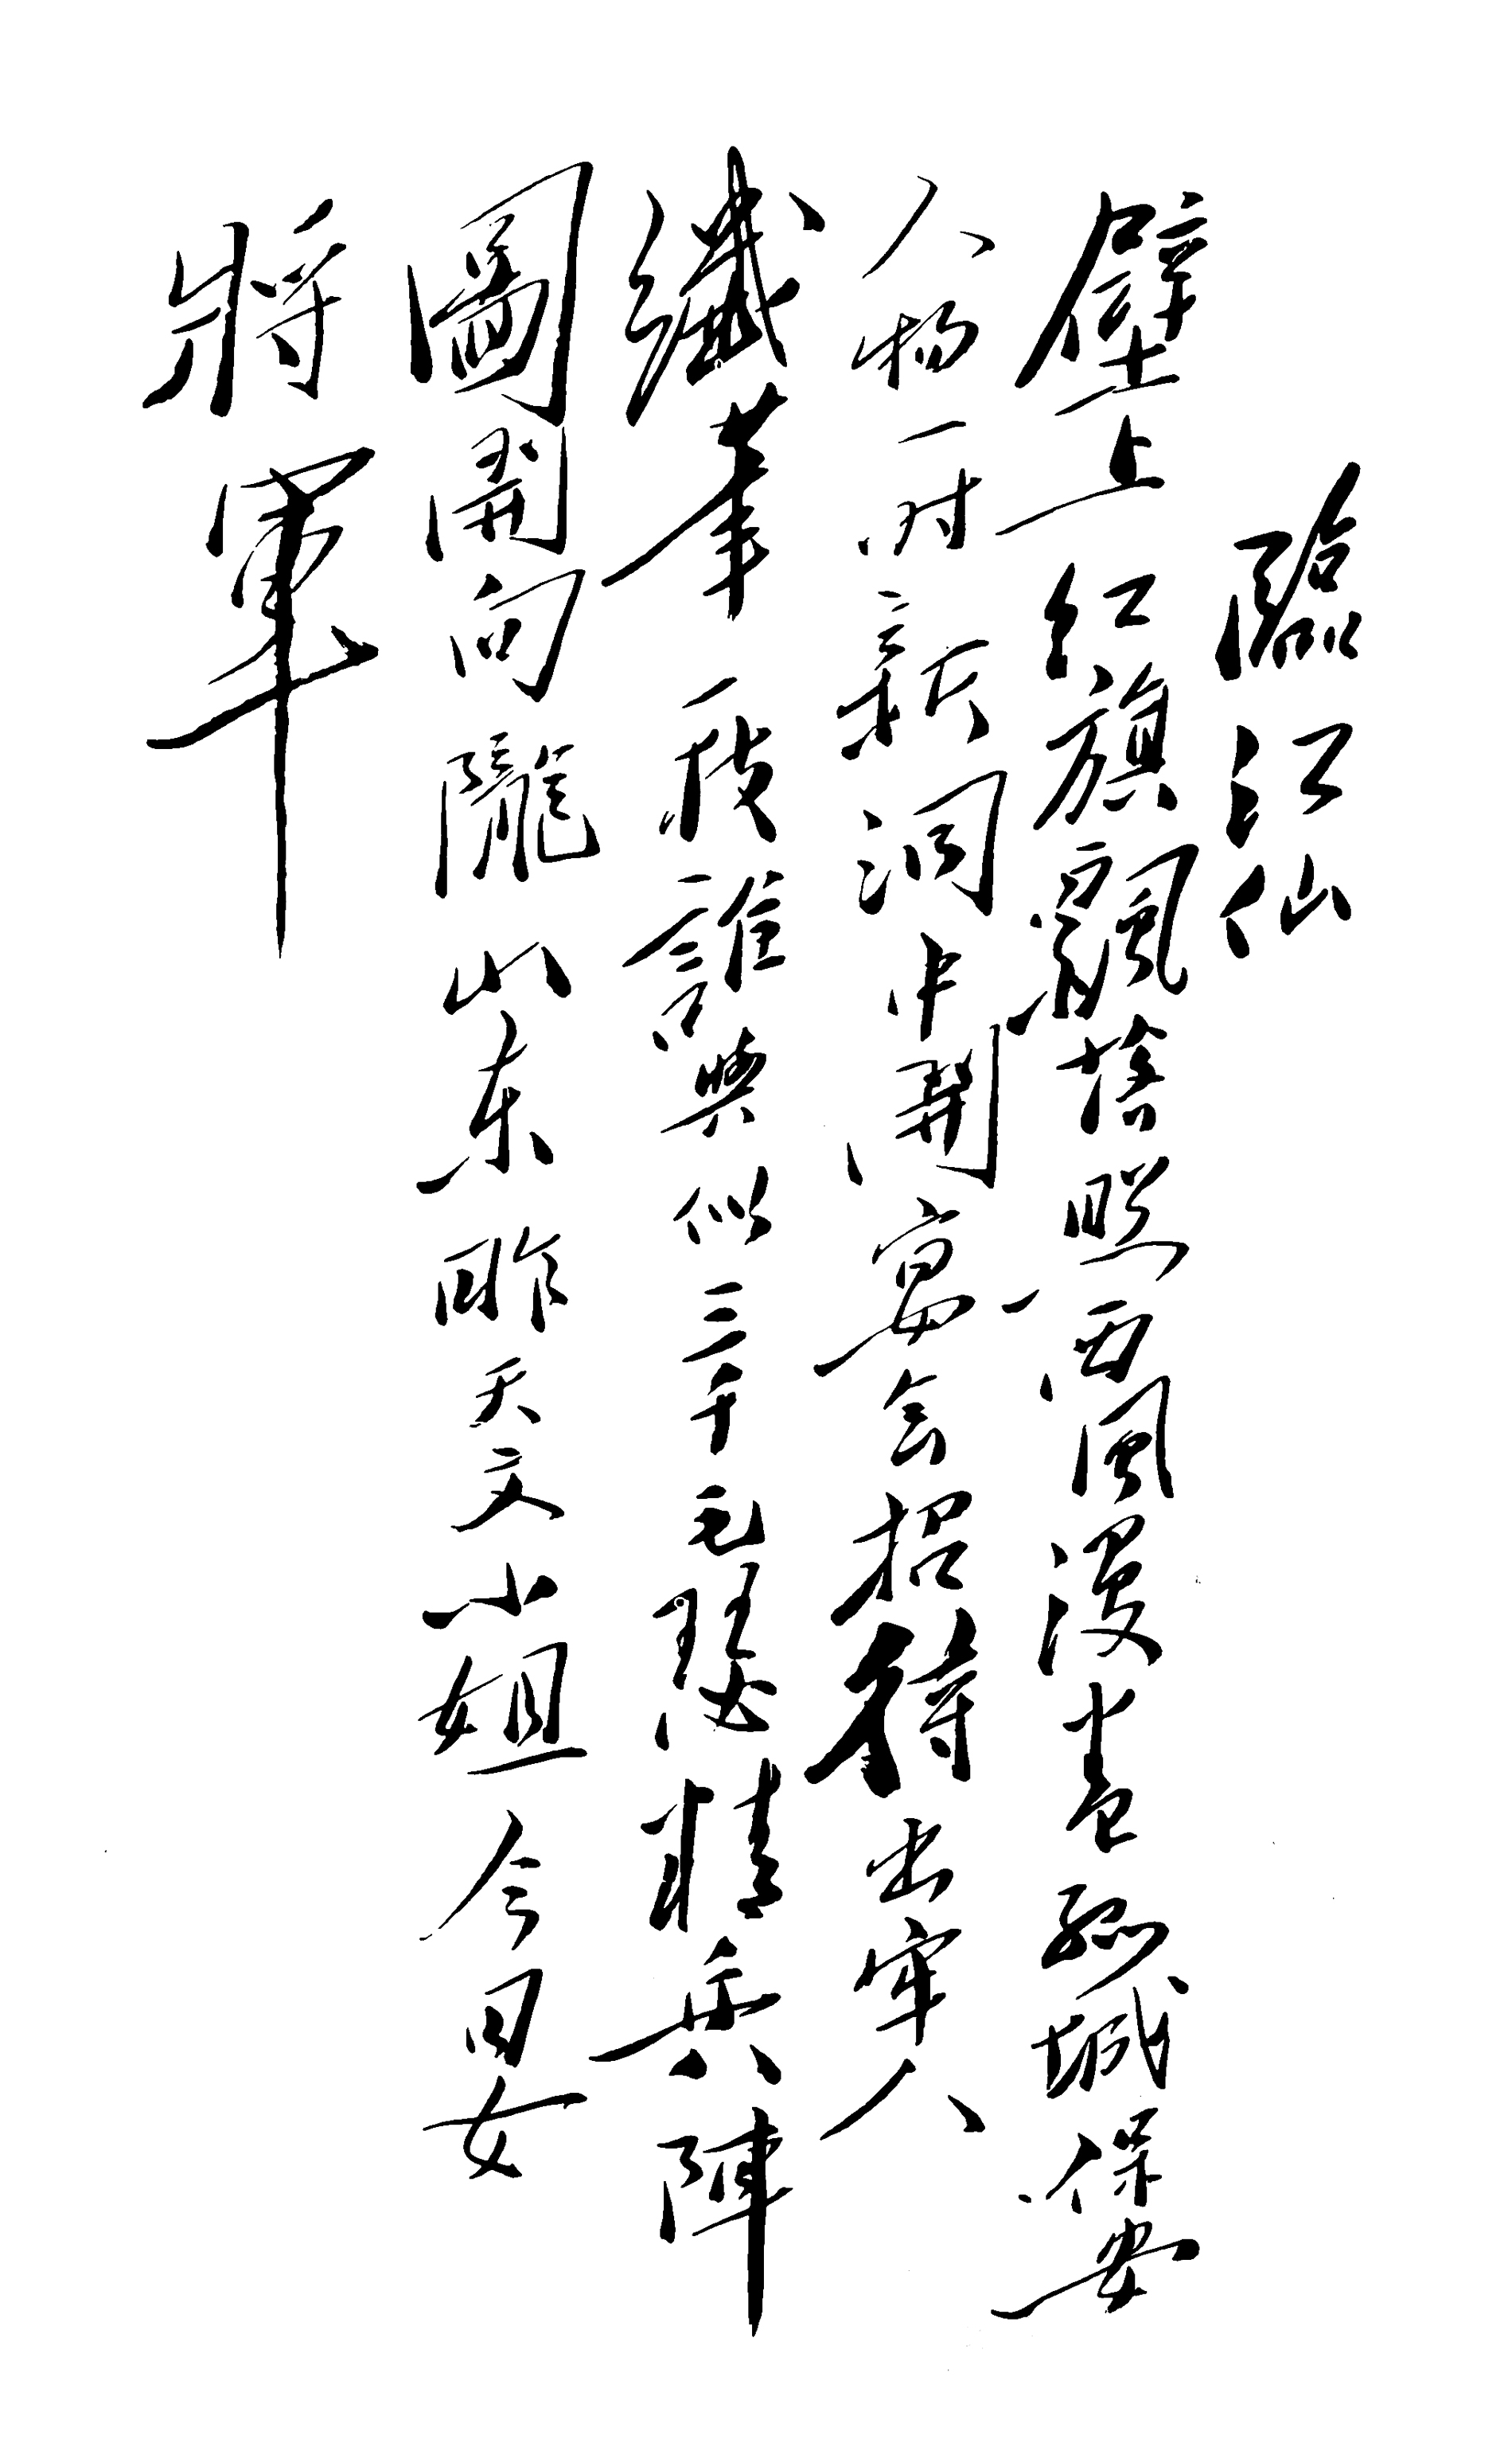 臨江仙
壁上紅旗飄落照西風漫卷孤城保安
人物一时新洞中開宴会招待出牢人
纖筆一枝誰與似三千毛瑟精兵陣
圖開向隴山東昨天文小姐今日武
將軍